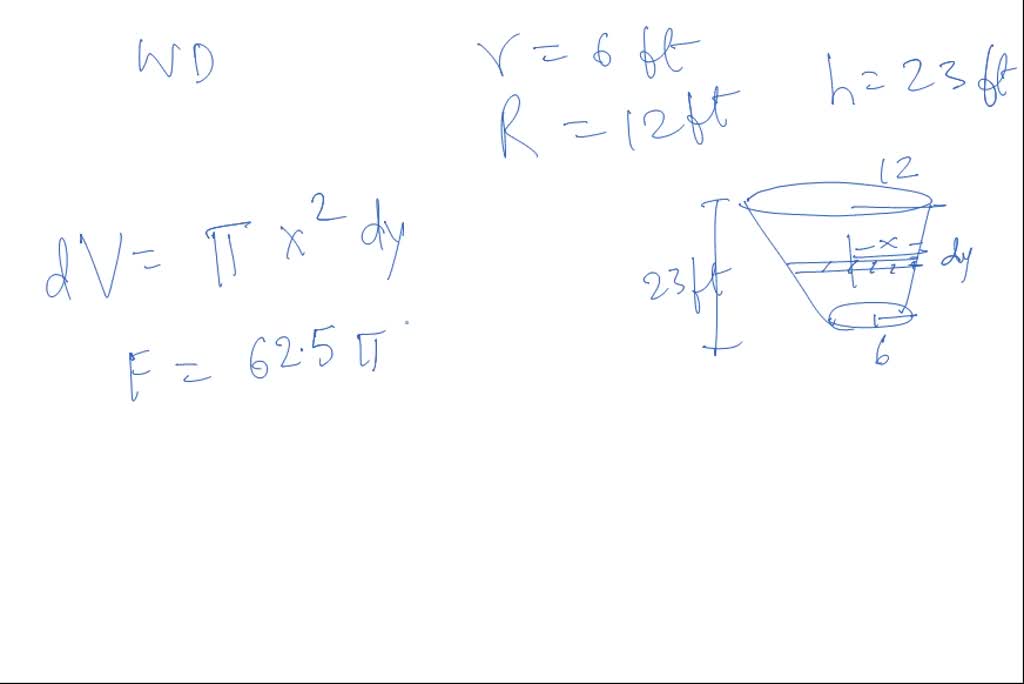 WD
r = 6 ft
R = 12 ft
h = 23 ft
dV = π x² dy
F = 62.5 π
12
x
dy
23 ft
6